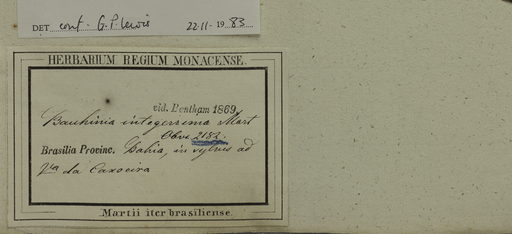 DET conf. G.P. Lewis 22.11-1983
HERBARIUM REGIUM MONACENSE.
vid. Bentham 1869.
Bauhinia integerrema Mart
Obs. 2182.
Brasilia Provinc. Bahia, in sylvis ad
Vla da Caxoeira
Martii iter brasiliense.